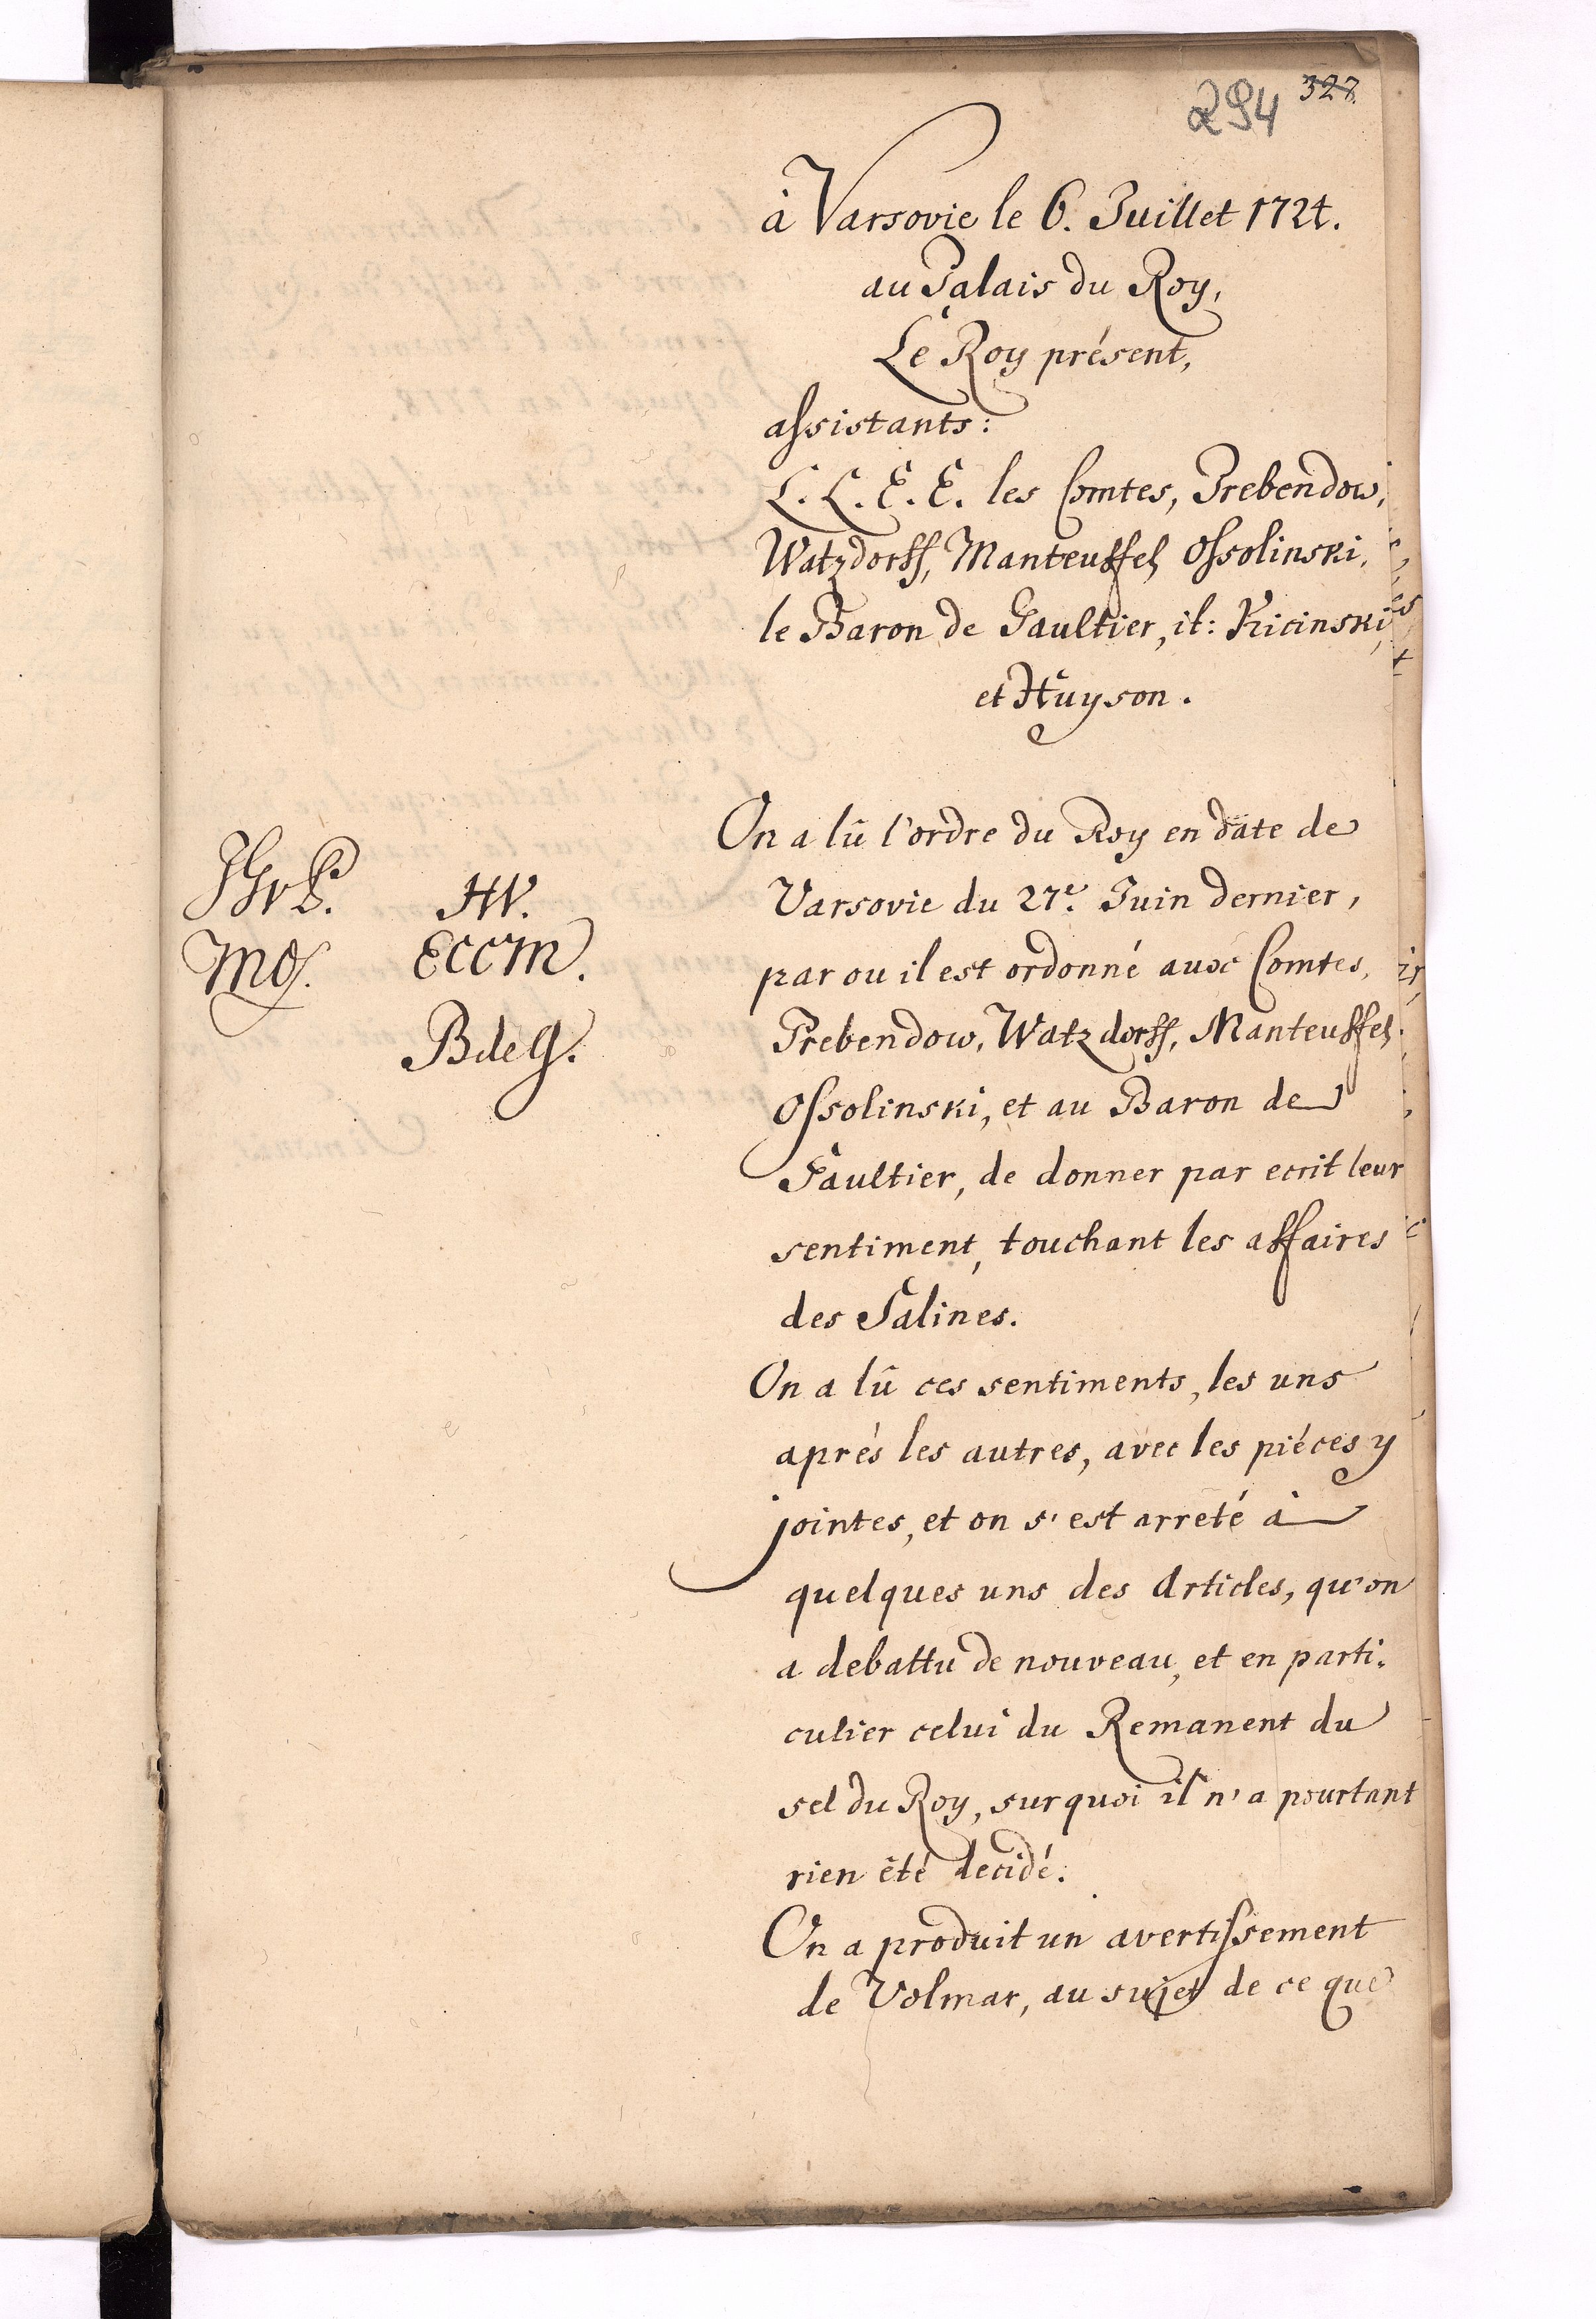 294 327.
à Varsovie le 6. Juillet 1724.
au Palais du Roy,
Le Roy présent,
assistants:
L. L. E. E. les Comtes, Prebendow,
Watzdorff, Manteuffel, Ossolinski,
le Baron de Gaultier, it: Kicinski,
et Huyson.
On a lû l'ordre du Roy en date de
Varsovie du 27e. Juin dernier,
par ou il est ordonné aux Comtes,
Prebendow, Watzdorff, Manteuffel,
Ossolinski, et au Baron de
Gaultier, de donner par ecrit leur
sentiment, touchant les affaires
des Salines.
HW.
MO.
ECCM.
BdeG.
On a lû ces sentiments, les uns
aprés les autres, avec les piéces y
jointes, et on s'est arreté à
quelques uns des Articles, qu'on
a debattu de nouveau, et en parti-
culier celui du Remanent du
sel du Roy, surquoi il n'a pourtant
rien été decidé.
On a produit un avertissement
de Volmar, au sujet de ce que